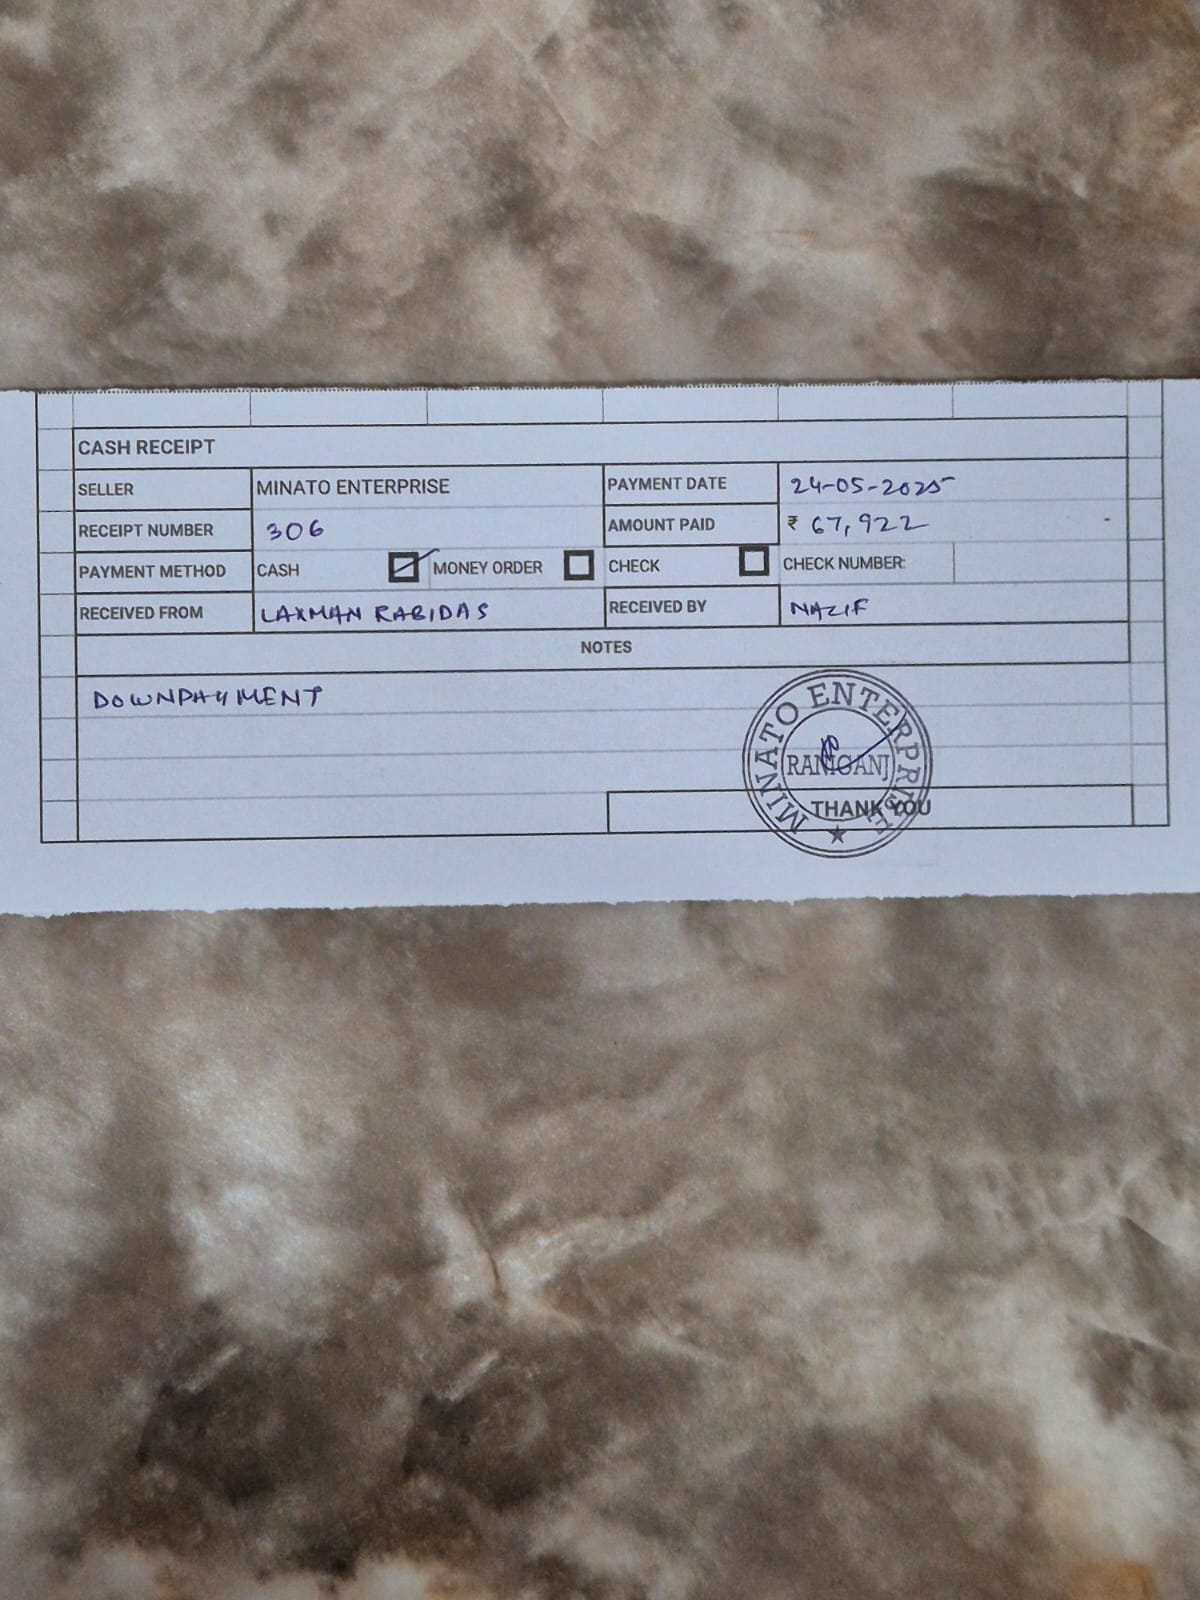 CASH RECEIPT
SELLER MINATO ENTERPRISE PAYMENT DATE 24-05-2025
RECEIPT NUMBER 306 AMOUNT PAID ₹ 67,922
PAYMENT METHOD CASH MONEY ORDER CHECK CHECK NUMBER:
RECEIVED FROM LAXMAN RABIDAS RECEIVED BY NAZIF
NOTES
DOWNPAYMENT
MINATO ENTERPRISE
RANIGANJ
THANK YOU